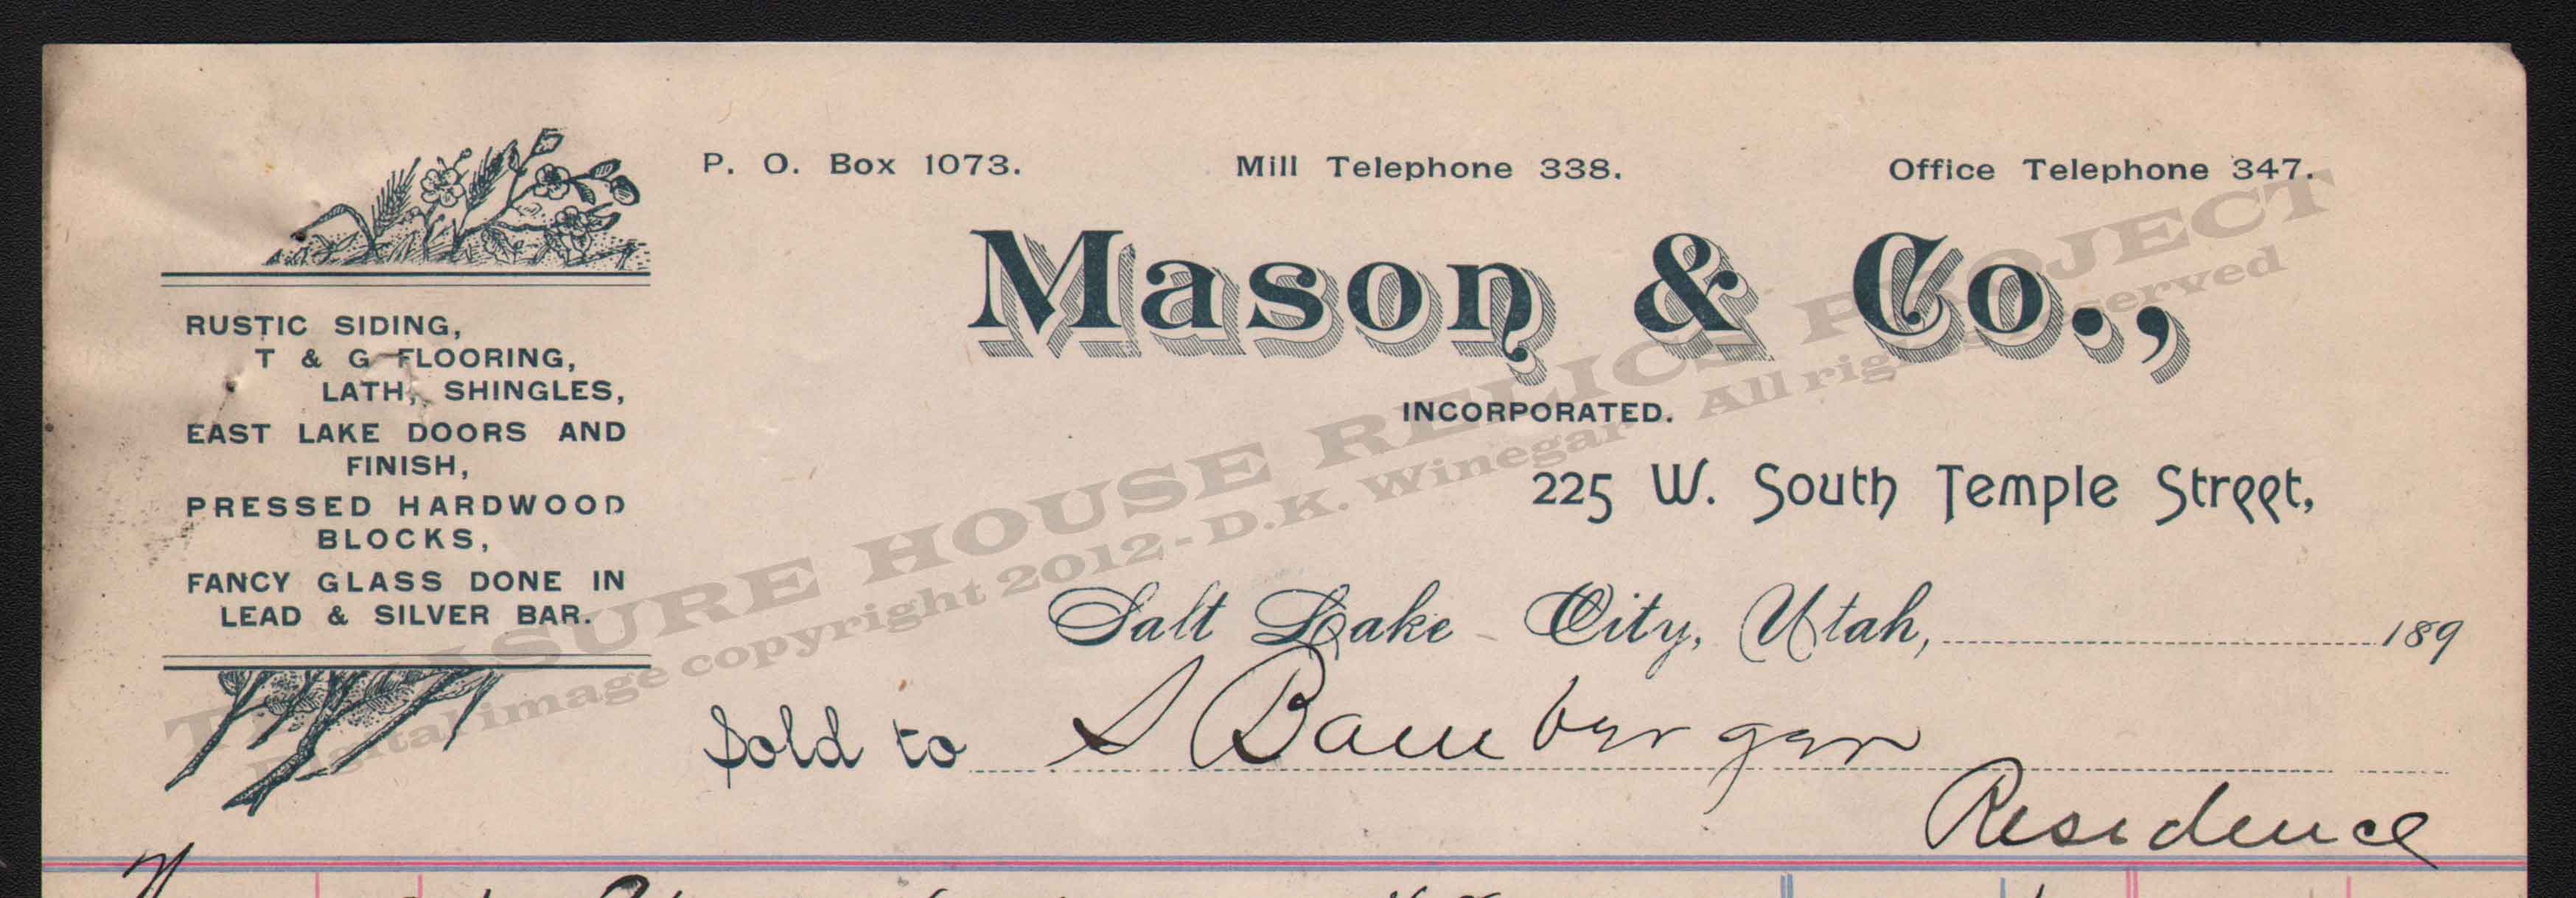 P. O. Box 1073. Mill Telephone 338. Office Telephone 347.
Mason & Co.,
INCORPORATED.
225 W. South Temple Street,
Salt Lake City, Utah, 189
Sold to S Bamberger
Residence
RUSTIC SIDING,
T & G FLOORING,
LATH, SHINGLES,
EAST LAKE DOORS AND
FINISH,
PRESSED HARDWOOD
BLOCKS,
FANCY GLASS DONE IN
LEAD & SILVER BAR.
TREASURE HOUSE RELICS PROJECT
Digital image copyright 2012 - D.K. Winegar - All rights reserved